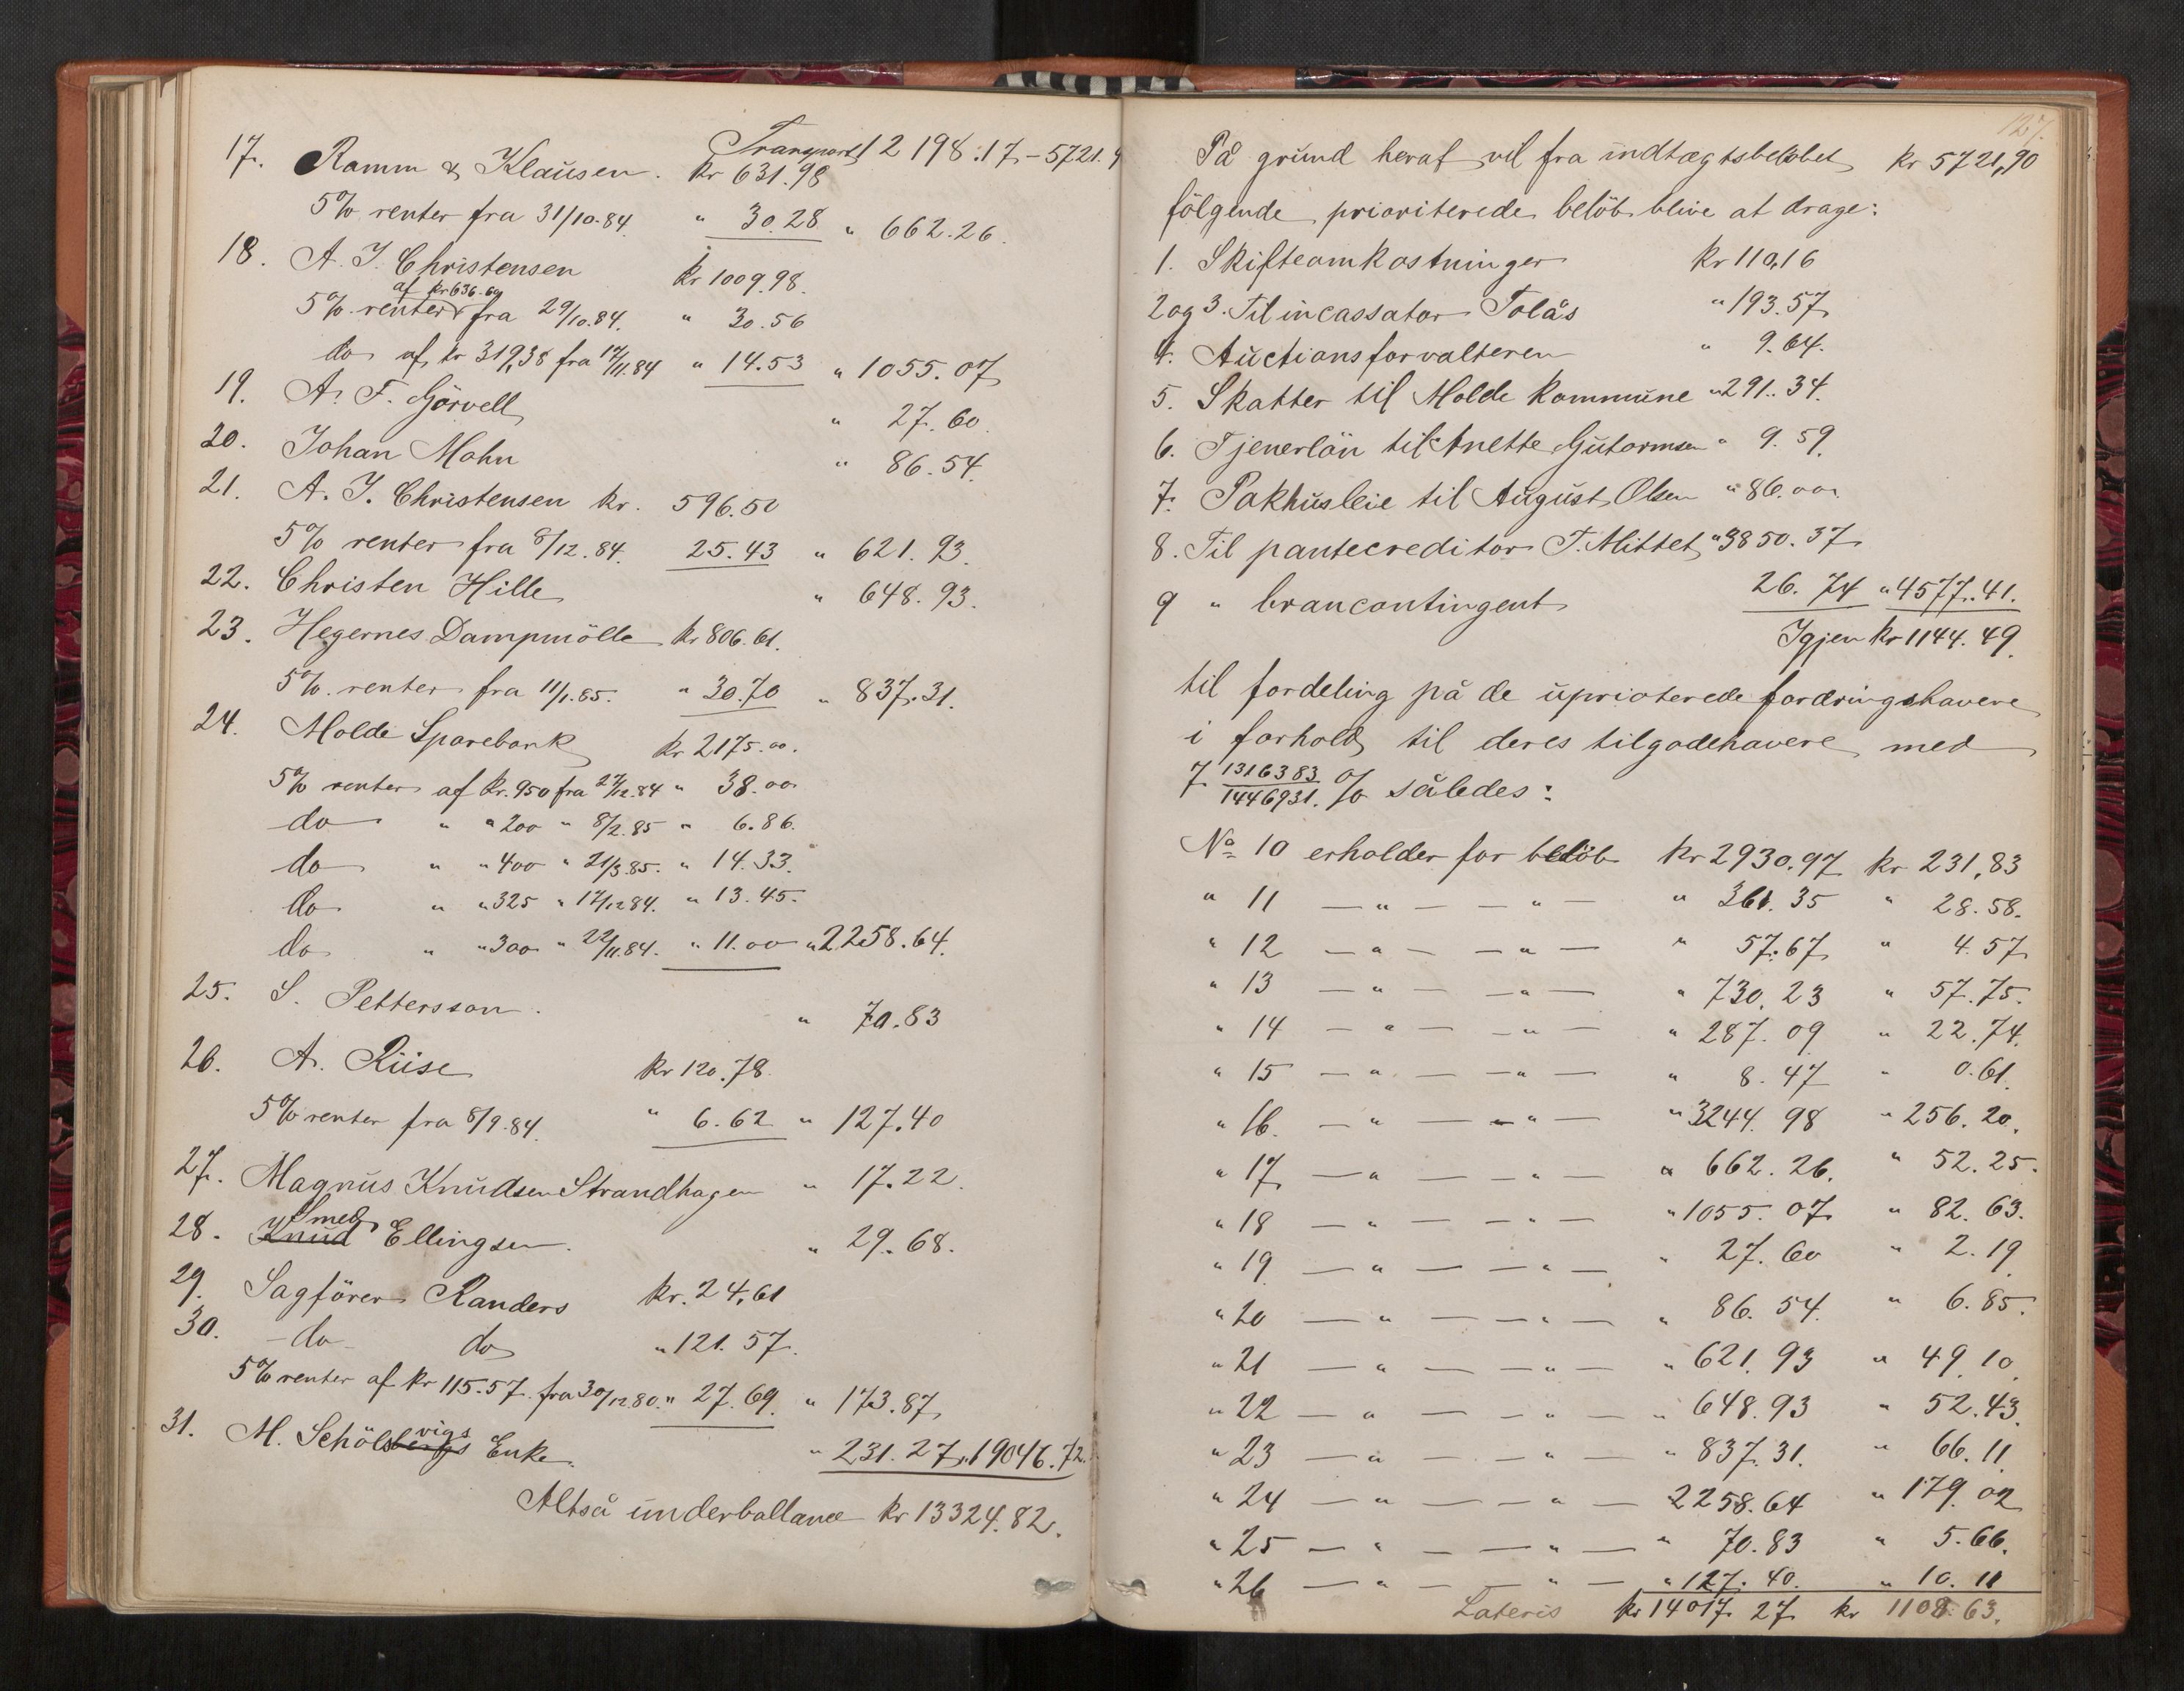 Transport 12 198.17 - 5721.9
17. Ramm & Klausen. Kr 631.98
5% renter fra 31/10.84. " 30.28 " 662.26.
18. A. J. Christensen Kr 1009.98.
af kr 636.60
5% renter fra 29/10.84. " 30.56
do af kr 319,38 fra 17/11.84 " 14.53 " 1055.07
19. A. F. Görvell " 27.60.
20. Johan Mohn " 86.54.
21. A. J. Christensen kr. 596.50
5% renter fra 8/12.84. 25.43 " 621.93.
22. Christen Hille " 648.93.
23. Hegernes Dampmölle kr 806.61.
5% renter fra 11/1.85. " 30.70 " 837.31.
24. Molde Sparebank kr 2175.00.
5% renter af kr. 950 fra 27/12.84 " 38.00
do " " 200 " 8/2.85 " 6.86.
do " " 400 " 21/3.85. " 14.33.
do " " 325 " 17/12 84. " 13.45.
do " " 300 " 22/11.84. " 11.00 " 2258.64.
25. S. Pettersson. " 70.83
26. A. Riise kr 120.78.
5% renter fra 8/9.84. " 6.62 " 127.40
27. Magnus Knudsen Strandhagen " 17.22.
Smed
28. Knud Ellingsen. " 29.68.
29. Sagförer Randers kr. 24,61
30. - do - do " 121.57.
5% renter af kr 115.57 fra 30/12 80. " 27.69. " 173.87,
31. M. Schölsbergs vigs Enke. " 231.27 " 19046.72.
Altså underballance kr 13324.82.
127.
På grund heraf vil fra indtægtsbelöbet kr 5721,90
fölgende prioriterede belöb blive at drage:
1. Skifteomkostninger kr 110,16
2 og 3. Til incassator Tolås " 193.57
4. Auctionsforvalteren " 9.64.
5. Skatter til Molde kommune " 291.34.
6. Tjenerlön til Anette Gutormsen " 9.59.
7. Pakhusleie til August Olsen " 86.00.
8. Til pantecreditor T. Mittet " 3850.37
9 " brancontingent 26.74 " 4577.41.
Igjen kr 1144.49.
til fordeling på de uprioterede fordringshavere
i forhold til deres tilgodehavere med
7 1316383/1446931. % således:
No 10 erholder for belöb kr 2930.97 kr 231,83
" 11 — " — — " — " 361.35 " 28.58.
" 12 — " — — " — " 57.67 " 4.57
" 13 — " — — " — " 730.23 " 57.75.
" 14 — " — — " — " 287.09 " 22.74.
" 15 — " — — " — " 8.47 " 0.61.
" 16. — " — — " — " 3244.98 " 256.20.
" 17 — " — — " — " 662.26. " 52.25.
" 18 — " — — " — " 1055.07. " 82.63.
" 19 — " — — " — " 27.60 " 2.19
" 20 — " — — " — " 86.54. " 6.85.
" 21 — " — — " — " 621.93 " 49.10
" 22 — " — — " — " 648.93 " 52.43.
" 23 — " — — " — " 837.31. " 66.11
" 24 — " — — " — 2258.64 " 179.02
" 25 — " — — " — " 70.83 " 5.66.
" 26 — " — — " — " 127.40. " 10.11
Lateris kr 14017.27 kr 1108.63.